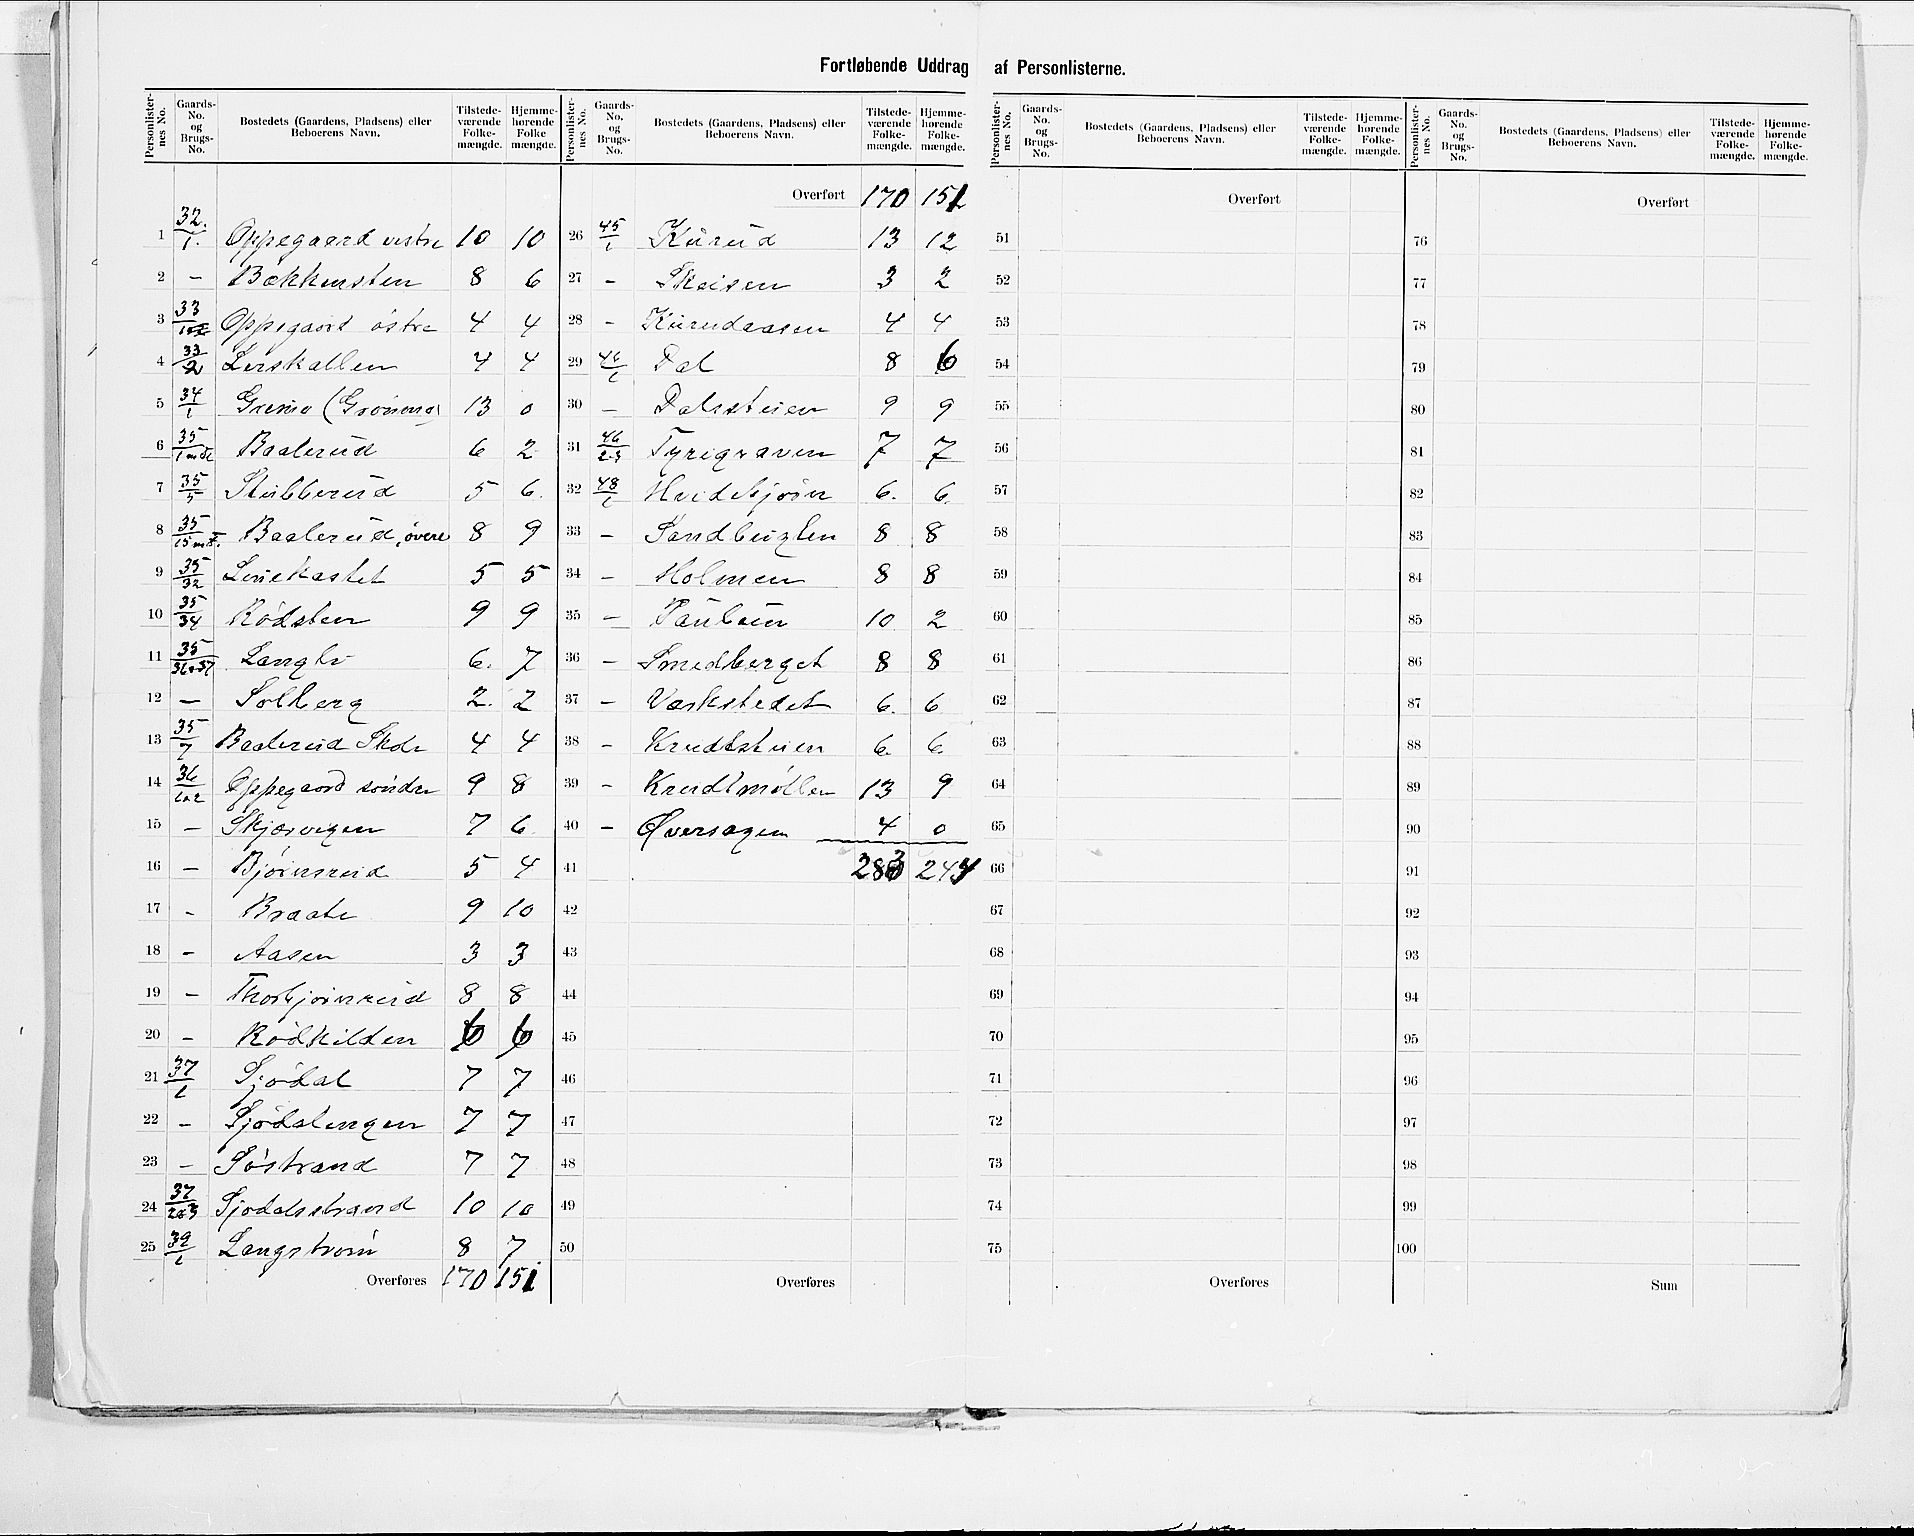 Fortløbende Uddrag af Personlisterne.
Personlister-nes No. | Gaards-No. og Brugs-No. | Bostedets (Gaardens, Pladsens) eller Beboerens Navn. | Tilstede-værende Folke-mængde. | Hjemme-hørende Folke mængde.
1 | 32./1. | Oppegaard vestre | 10 | 10
2 | – | Bækkensten | 8 | 6
3 | 33/ | Oppegaard østre | 4 | 4
4 | 33/2 | Lerskallen | 4 | 4
5 | 34/1 | Grenno (Grønmo) | 13 | 0
6 | 35/ | Baalerud | 6 | 2
7 | 35/5 | Stubberud | 5 | 6.
8 | 35/ | Baalerud, øvere | 8 | 9
9 | 35/32 | Linekastet | 5 | 5
10 | 35/34 | Rødsten | 9 | 9
11 | 35/36&37 | Langli | 6. | 7
12 | – | Solberg | 2. | 2
13 | 35/7 | Baalerud Skole | 4 | 4
14 | 36/1&2 | Oppegaard søndre | 9 | 8
15 | – | Skjærvigen | 7 | 6.
16 | – | Bjørnsrud | 5 | 4
17 | - | Braate | 9 | 10
18 | – | Aasen | 3 | 3
19 | – | Thorbjørnsrud | 8 | 8
20 | – | Rødkilden | 6 | 6
21 | 37/1 | Sjødal | 7 | 7
22 | – | Sjødalengen | 7 | 7
23 | – | Søstrand | 7 | 7
24 | 37/2&3 | Sjødalsstrand | 10 | 10
25 | 39/1 | Langstrøm | 8 | 7
Overføres 170 151
Personlister-nes No. | Gaards-No. og Brugs-No. | Bostedets (Gaardens, Pladsens) eller Beboerens Navn. | Tilstede-værende Folke-mængde. | Hjemme-hørende Folke-mængde.
Overført 170 151
26 | 45/1 | Kurud | 13 | 12
27 | - | Skeisen | 3 | 2
28 | - | Kurudaasen | 4 | 4
29 | 46/1 | Dal | 8 | 6
30 | – | Dalsstuen | 9 | 9
31 | 46/2-3 | Tyrigraven | 7 | 7
32 | 48/1 | Hvidebjørn | 6. | 6.
33 | – | Sandbugten | 8 | 8
34 | – | Holmen | 8 | 8
35 | – | | 10 | 2
36 | – | Smedberget | 8 | 8
37 | – | Værkstedet | 6. | 6
38 | - | Krudtstuen | 6. | 6.
39 | - | Krudtmøllen | 13 | 9
40 | – | Øversagen | 4 | 0
41 | 283 | 244
42
43
44
45
46
47
48
49
50
Overføres
Personlister-nes No. | Gaards-No. og Brugs-No. | Bostedets (Gaardens, Pladsens) eller Beboerens Navn. | Tilstede-værende Folke-mængde. | Hjemme-hørende Folke-mængde.
Overført
51
52
53
54
55
56
57
58
59
60
61
62
63
64
65
66
67
68
69
70
71
72
73
74
75
Overføres
Personlister-nes No. | Gaards-No. og Brugs-No. | Bostedets (Gaardens, Pladsens) eller Beboerens Navn. | Tilstede-værende Folke-mængde. | Hjemme-hørende Folke-mængde.
Overført
76
77
78
79
80
81
82
83
84
85
86
87
88
89
90
91
92
93
94
95
96
97
98
99
100
Sum